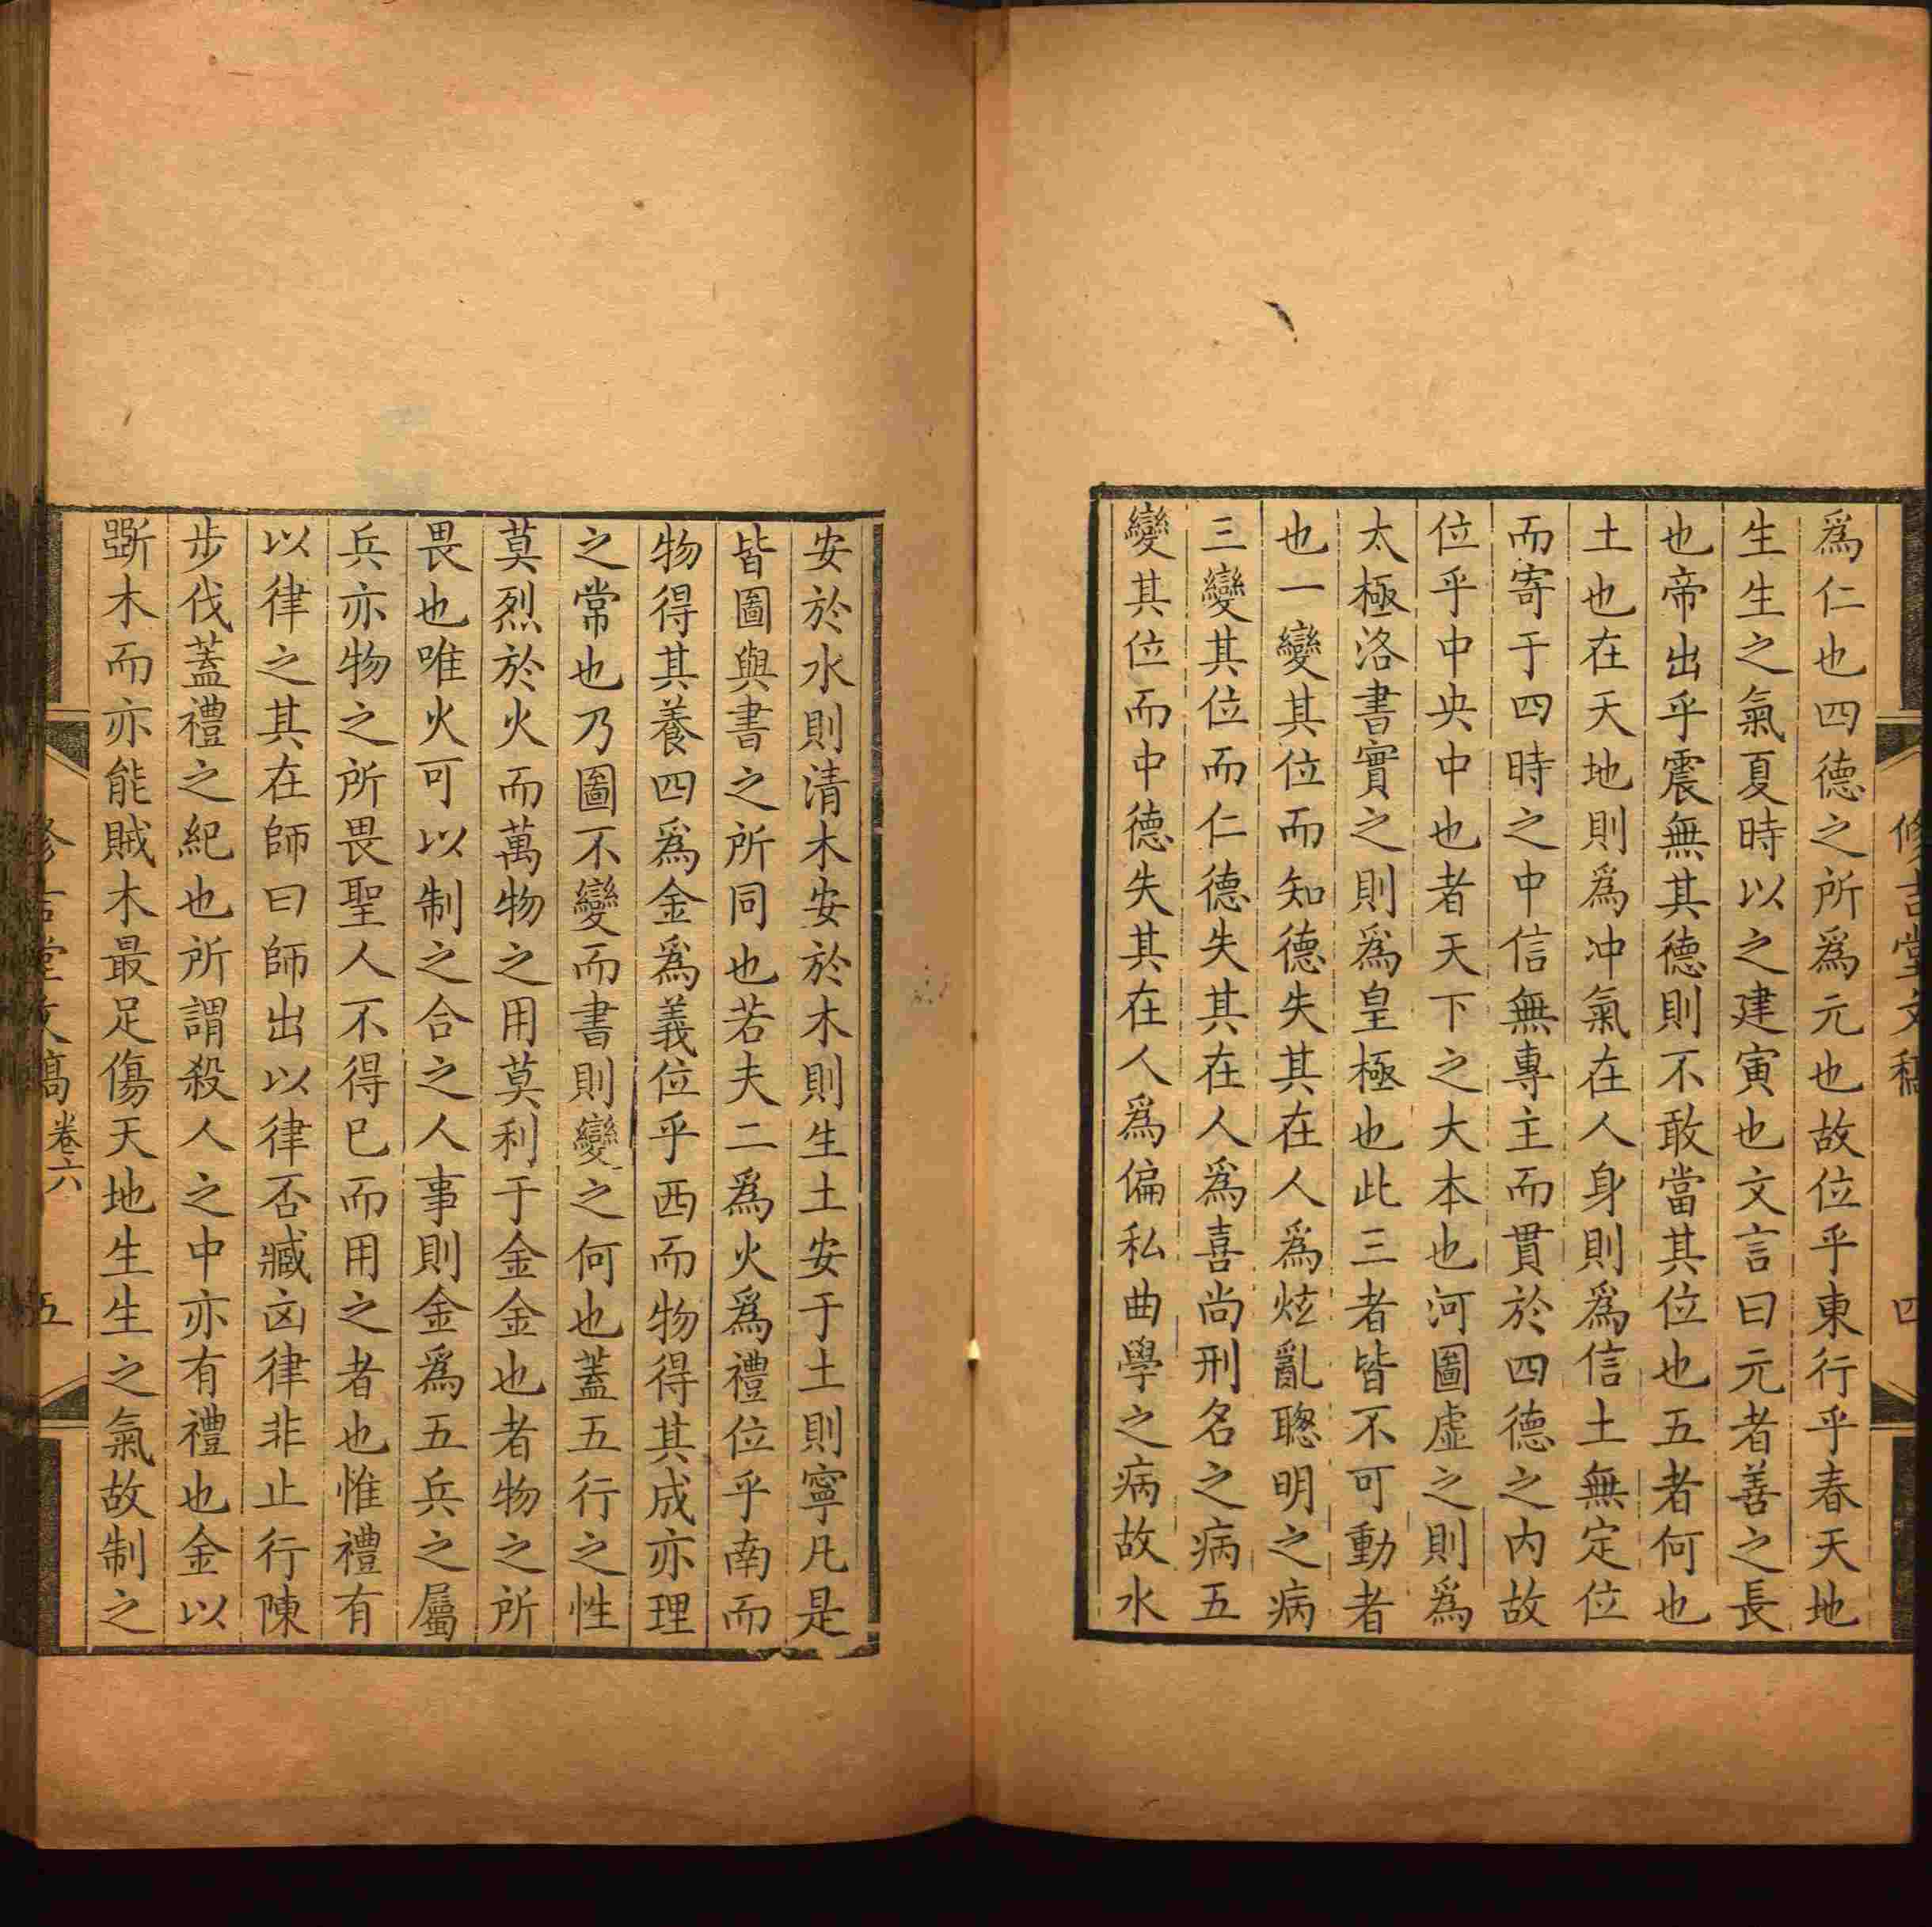 修吉堂文稿
四
爲仁也四德之所爲元也故位乎東行乎春天地
生生之氣夏時以之建寅也文言曰元者善之長
也帝出乎震無其德則不敢當其位也五者何也
土也在天地則爲冲氣在人身則爲信土無定位
而寄于四時之中信無專主而貫於四德之内故
位乎中央中也者天下之大本也河圖虛之則爲
太極洛書實之則爲皇極也此三者皆不可動者
也一變其位而知德失其在人爲炫亂聰明之病
三變其位而仁德失其在人爲喜尚刑名之病五
變其位而中德失其在人爲偏私曲學之病故水
安於水則清木安於木則生土安于土則寧凡是
皆圖與書之所同也若夫二爲火爲禮位乎南而
物得其養四爲金爲義位乎西而物得其成亦理
之常也乃圖不變而書則變之何也蓋五行之性
莫烈於火而萬物之用莫利于金金也者物之所
畏也唯火可以制之合之人事則金爲五兵之屬
兵亦物之所畏聖人不得已而用之者也惟禮有
以律之其在師曰師出以律否臧凶律非止行陳
步伐蓋禮之紀也所謂殺人之中亦有禮也金以
斲木而亦能賊木最足傷天地生生之氣故制之
修吉堂文稿卷六
五